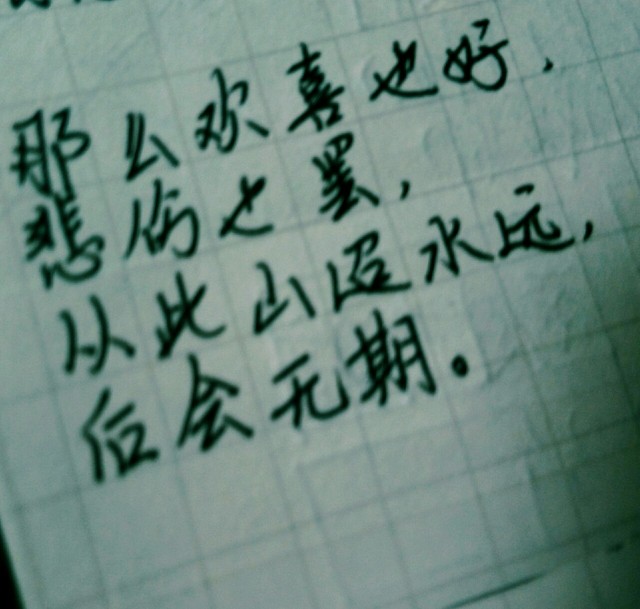 那么欢喜也好，
悲伤也罢，
从此山迢水远，
后会无期。